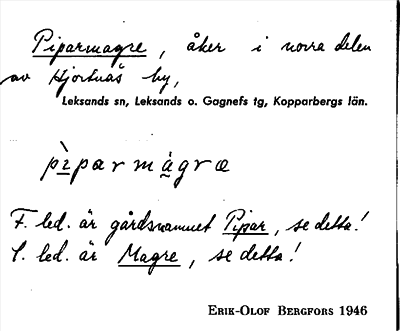 Piparmagre, åker i norra delen
av Hjortnäs by,
Leksands sn, Leksands o. Gagnefs tg, Kopparbergs län.
pìparmàgræ
F. led. är gårdsnamnet Pipar, se detta!
S. led. är Magre, se detta!
ERIK-OLOF BERGFORS 1946